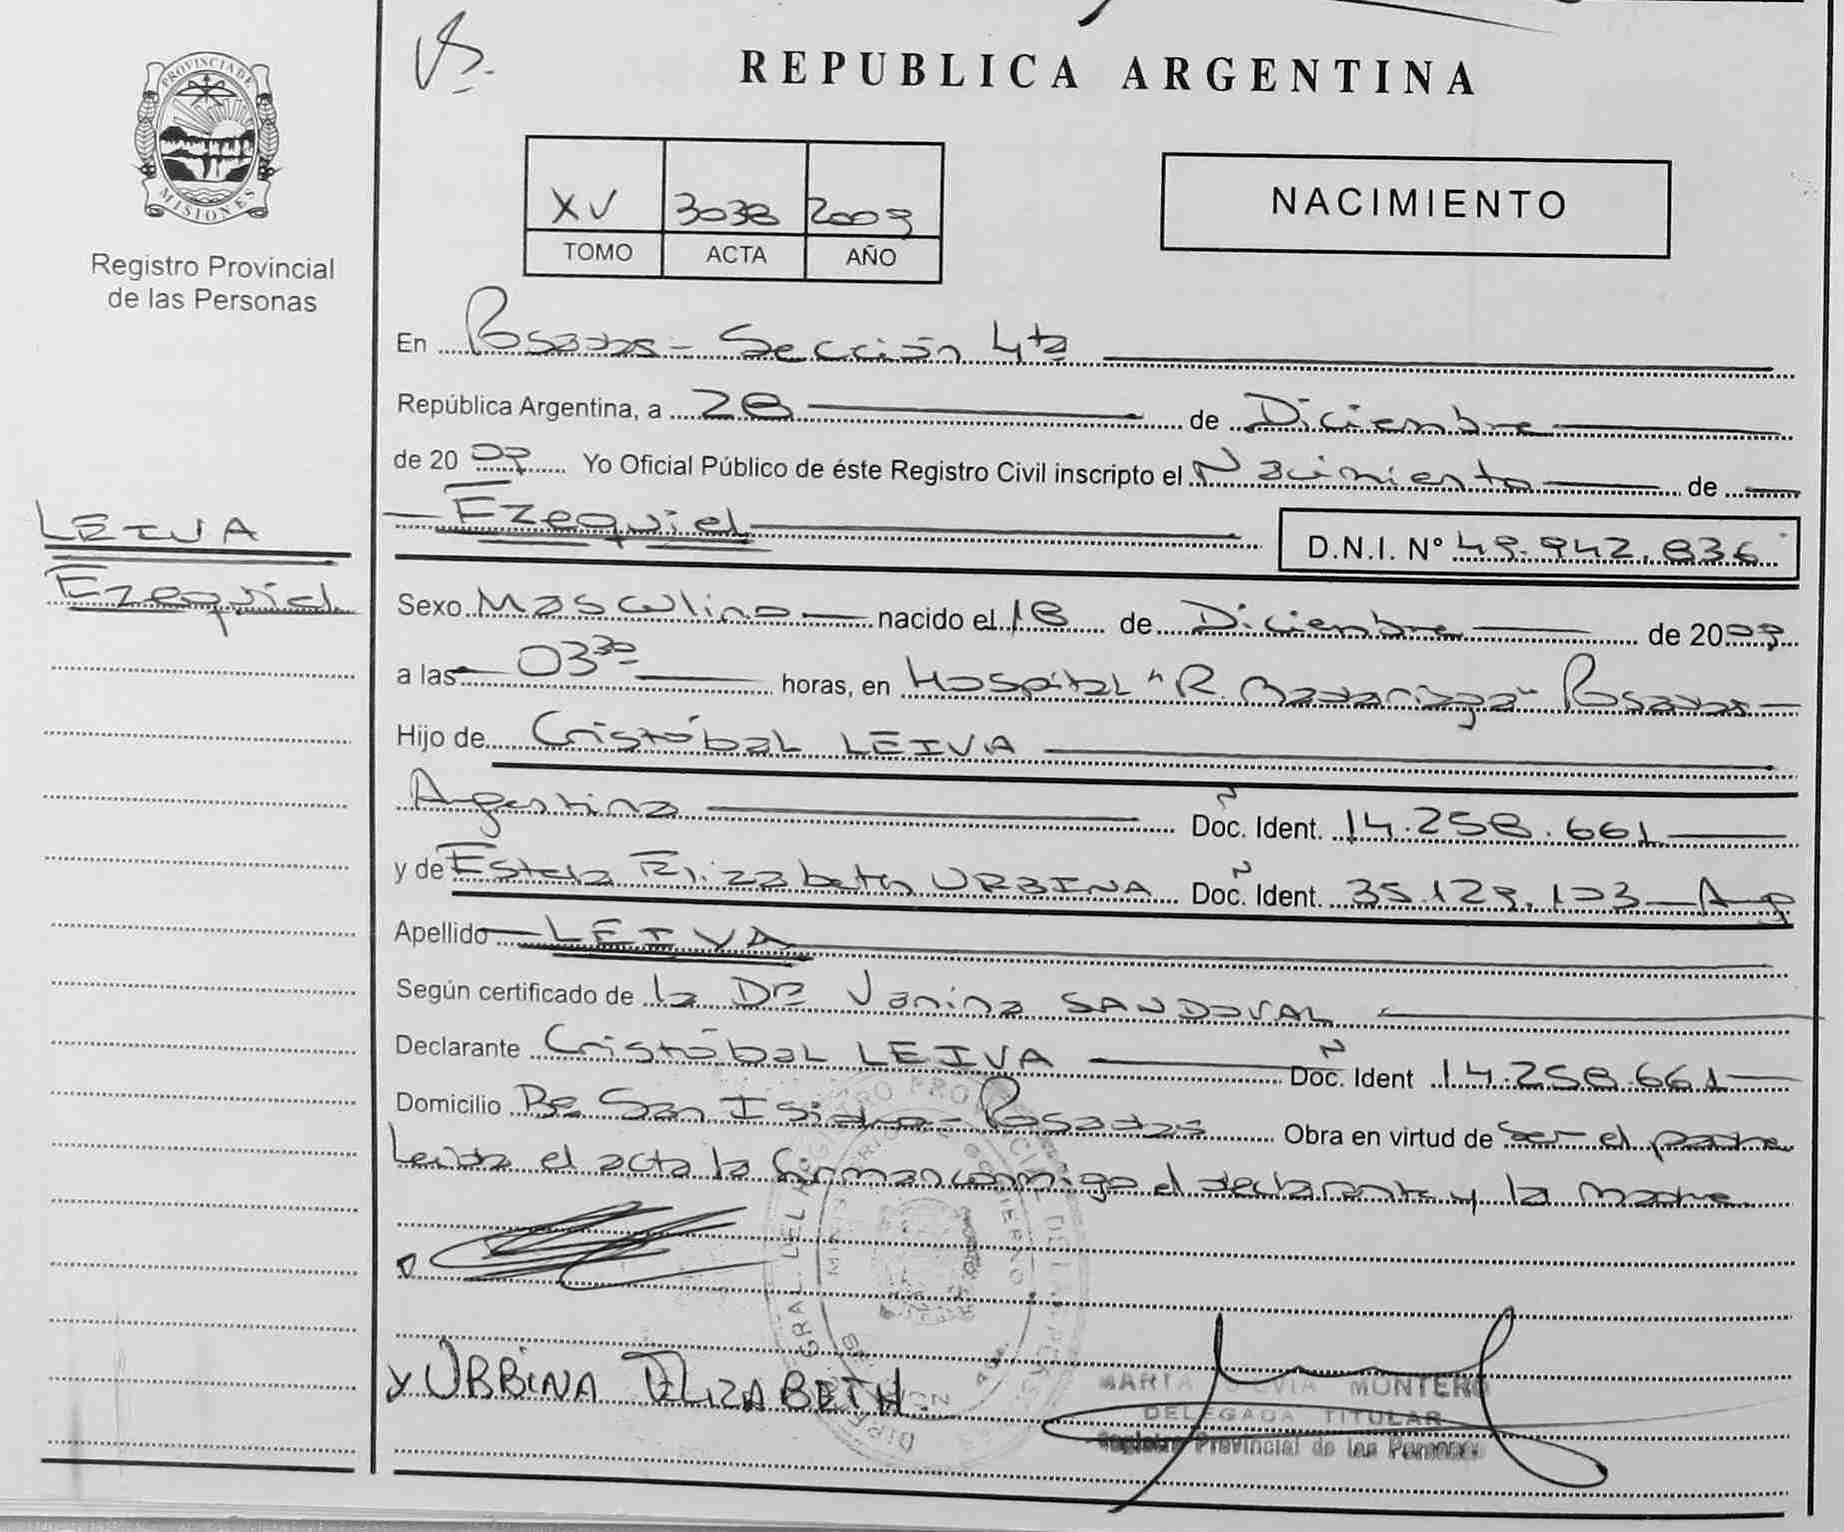 PROVINCIA DE
MISIONES
Registro Provincial
de las Personas
LEIVA
Ezequiel
REPUBLICA ARGENTINA
XV 3038 2009
TOMO ACTA AÑO
NACIMIENTO
En Posadas - Sección 4ta
República Argentina, a 28 de Diciembre
de 2009 Yo Oficial Público de éste Registro Civil inscripto el Nacimiento de
Ezequiel D.N.I. N° 49.942.836
Sexo Masculino nacido el 18 de Diciembre de 2009
a las 03 30 horas, en Hospital "R. Madariaga" Posadas
Hijo de Cristóbal LEIVA
Argentina Doc. Ident. 14.258.661
y de Estela Elizabeth URBINA Doc. Ident. 35.129.103 - Arg
Apellido LEIVA
Según certificado de la Dra Janina SANDOVAL
Declarante Cristóbal LEIVA Doc. Ident 14.258.661
Domicilio Bº San Isidro - Posadas Obra en virtud de ser el padre
Leida el acta la firman conmigo el declarante y la madre.
URBINA ELIZABETH.
MARTA SILVIA MONTERO
DELEGADA TITULAR
Registro Provincial de las Personas